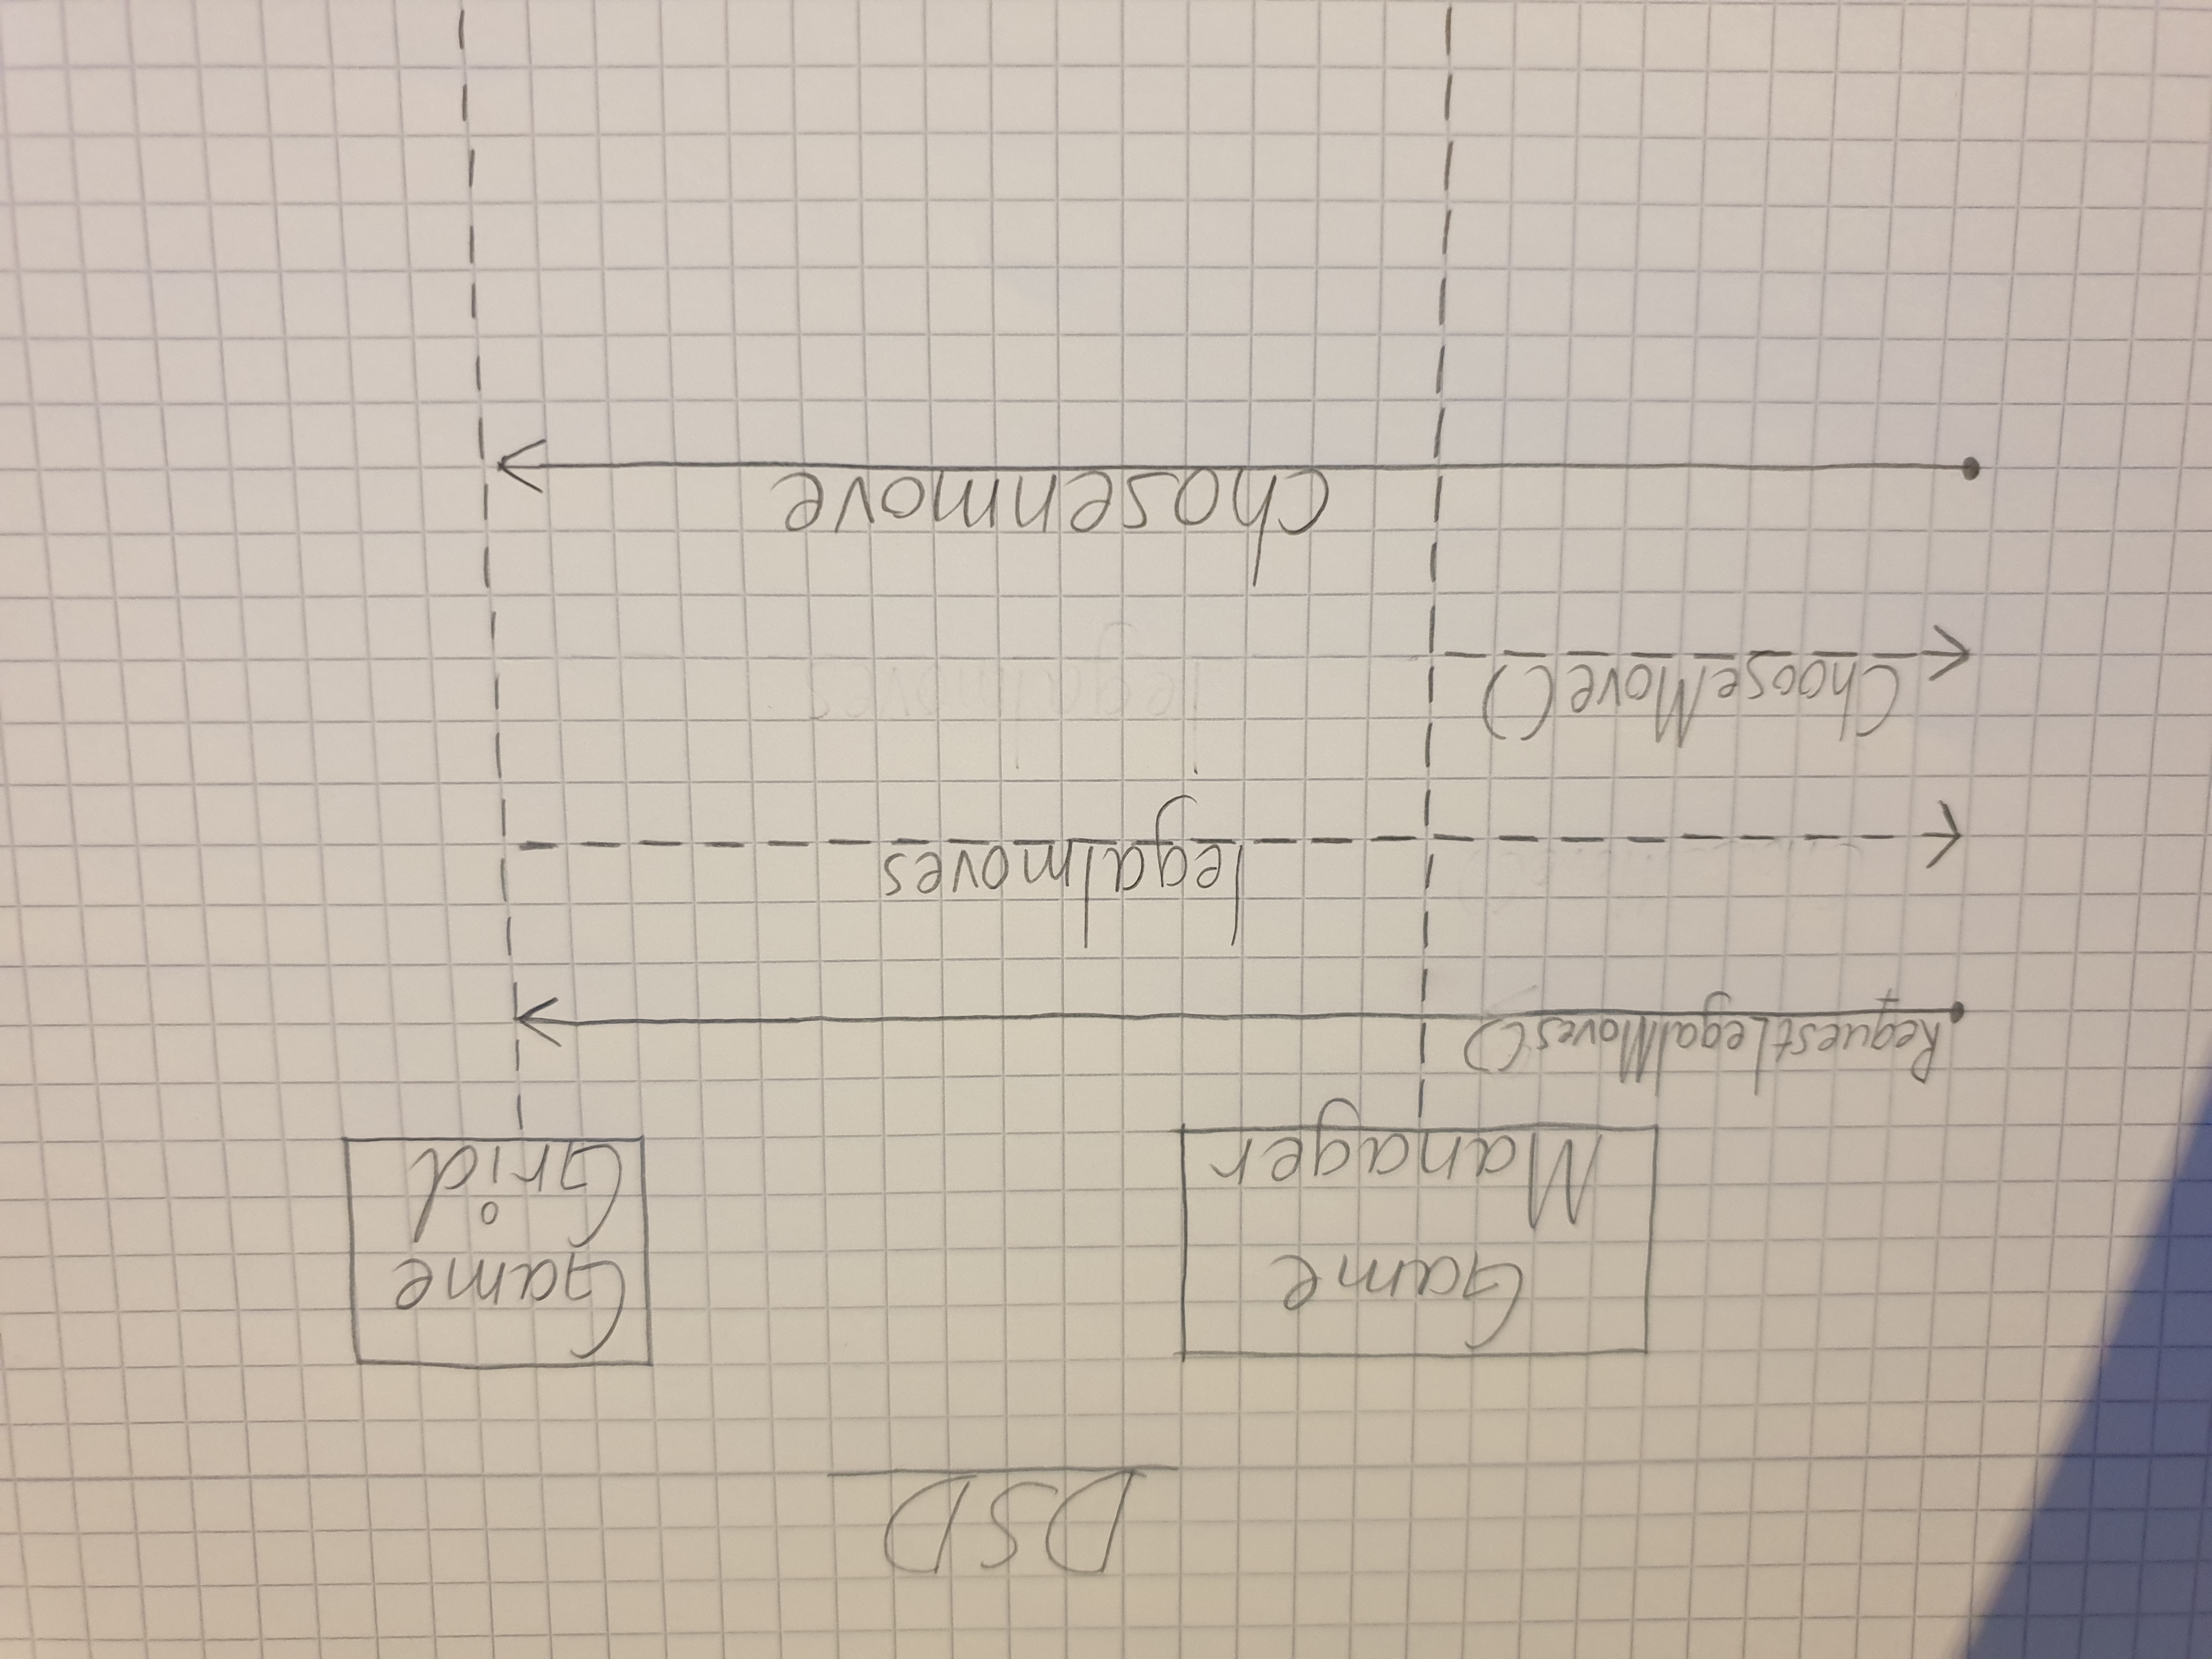 DSD
Game
Manager
Game
Grid
RequestLegalMoves()
legalmoves
ChooseMove()
legalmoves
chosenmove